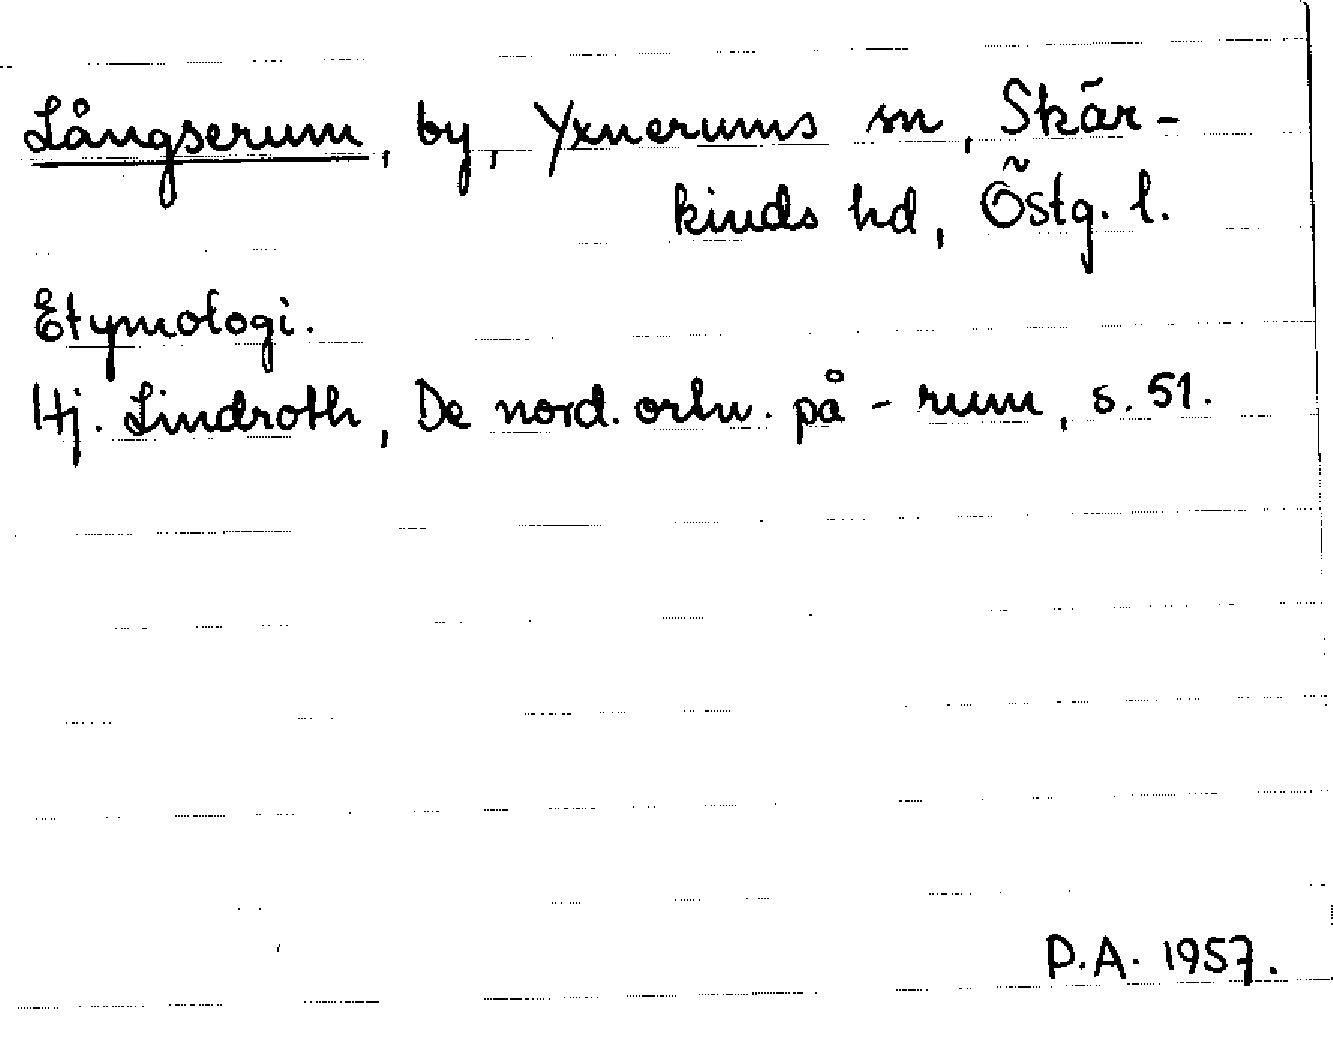 Långserum, by, Yxnerums sn, Skär-
kinds hd, Östg. l.
Etymologi.
Hj. Lindroth, De nord. ortn. på -rum, s. 51.
P.A. 1957.